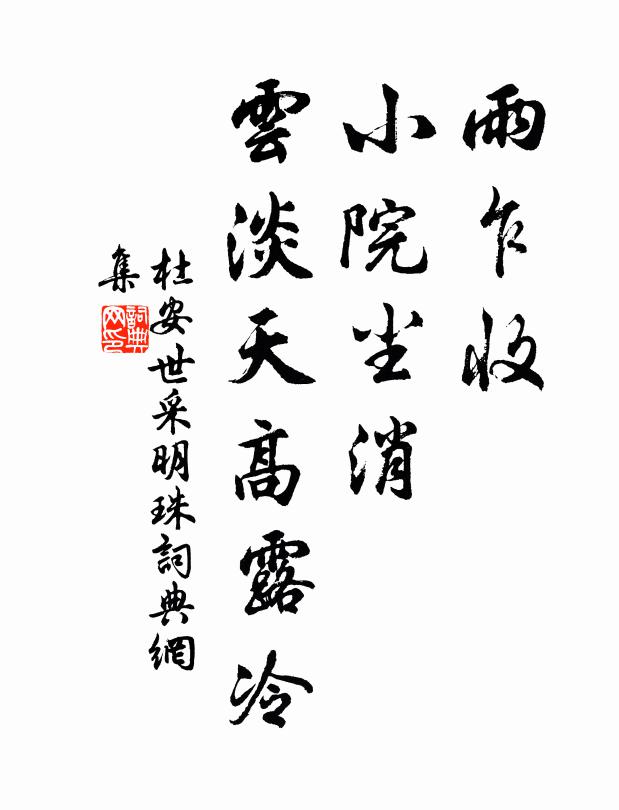 雨乍收
小院尘消
雲淡天高露冷
杜安世采明珠詞典網
集
詞典
网印